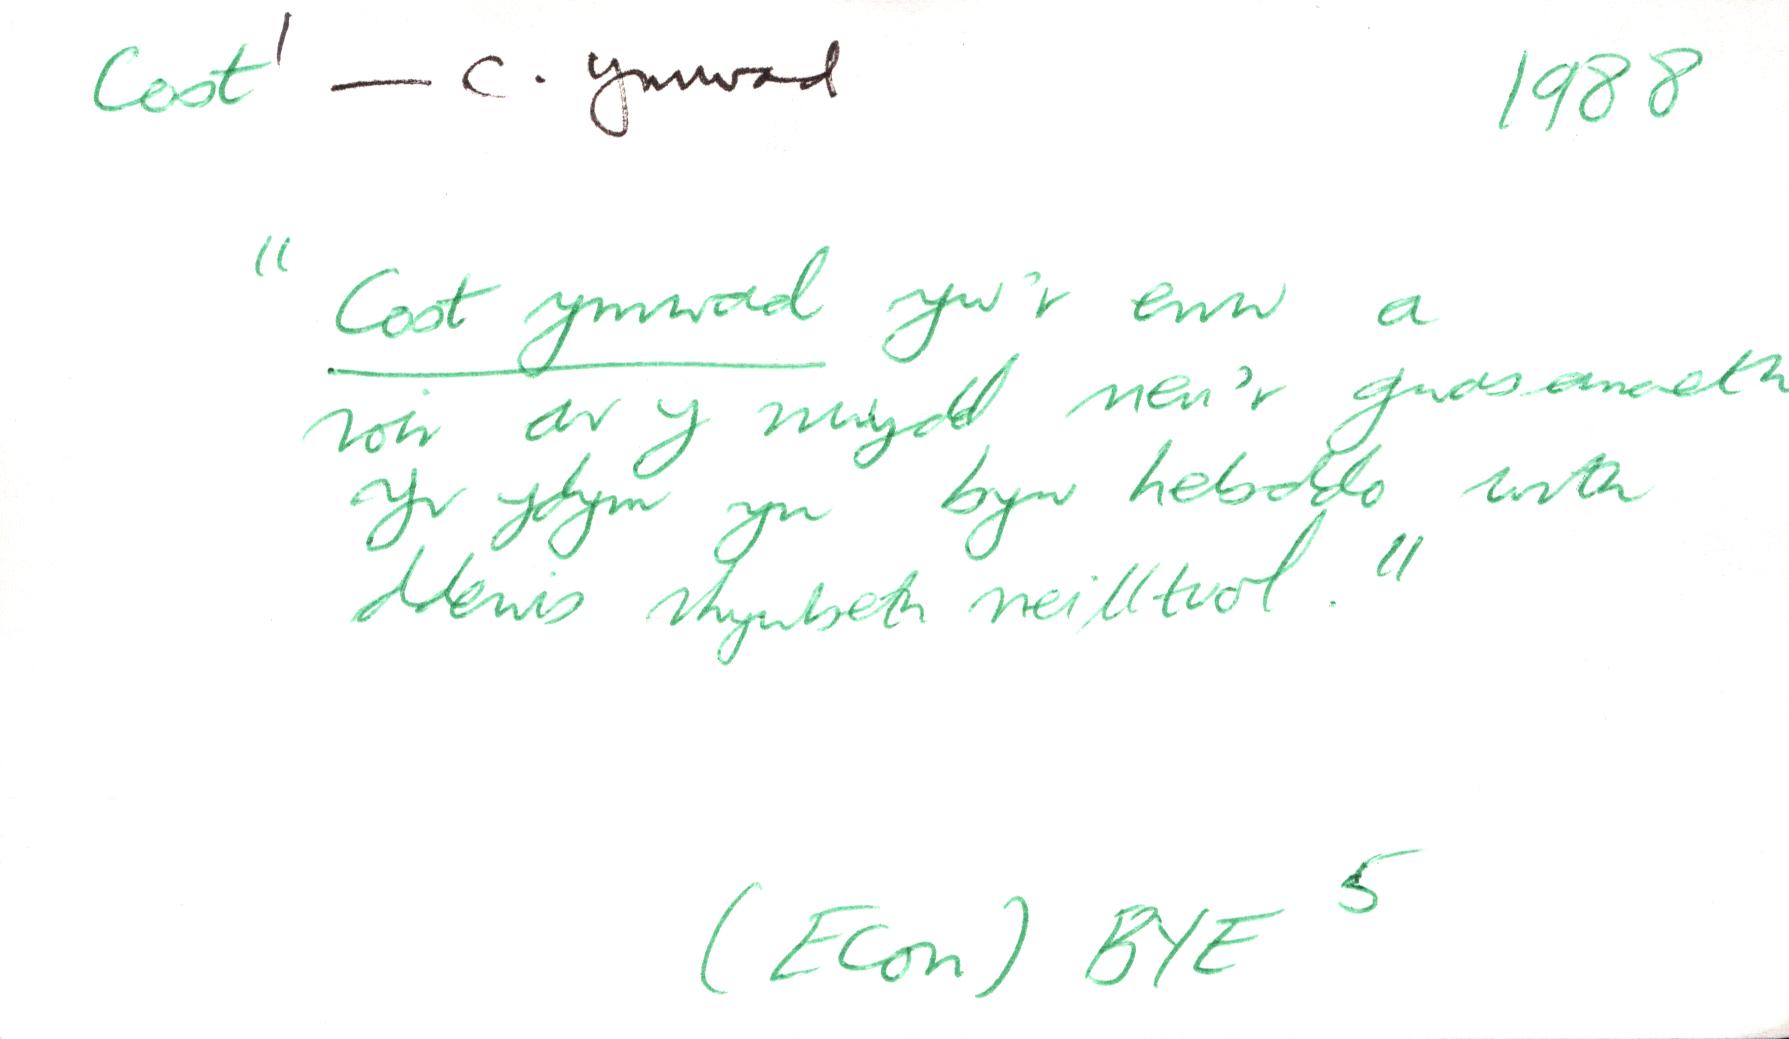 Cost¹ — c. ymwad 1988
"Cost ymwad yw'r enw a
roir ar y nwydd neu'r gwasanaeth
yr ydym yn byw hebddo wrth
ddewis rhywbeth neilltuol."
(Econ) BYE 5